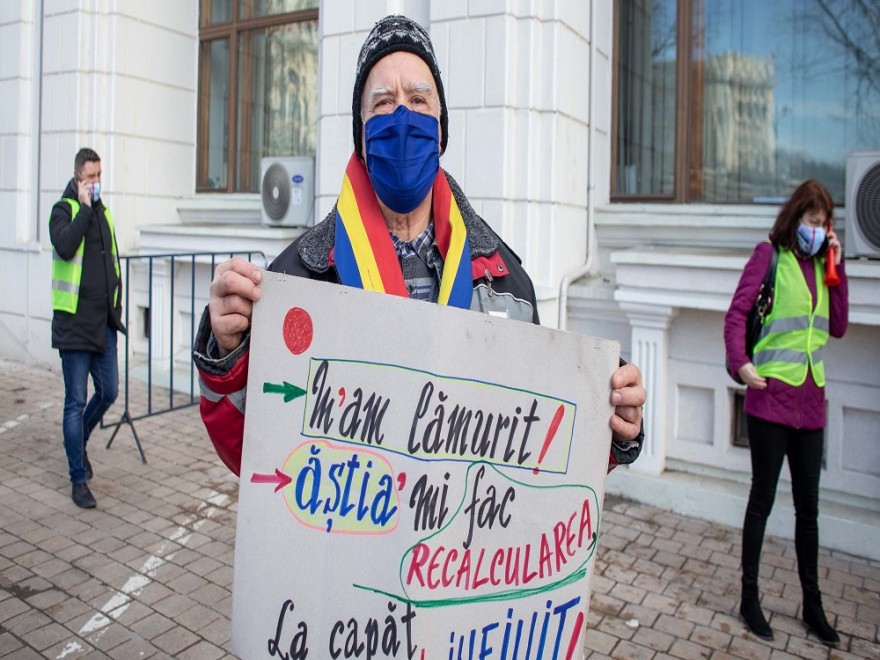 M'am lămurit!
ăștia' mi fac
RECALCULAREA
La capăt